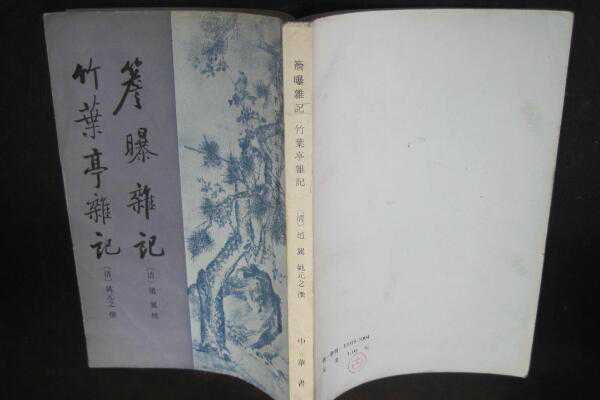 簷曝雜記
〔清〕趙翼撰
竹葉亭雜記
〔清〕姚元之撰
簷曝雜記 竹葉亭雜記
〔清〕趙翼 姚元之撰
中華書